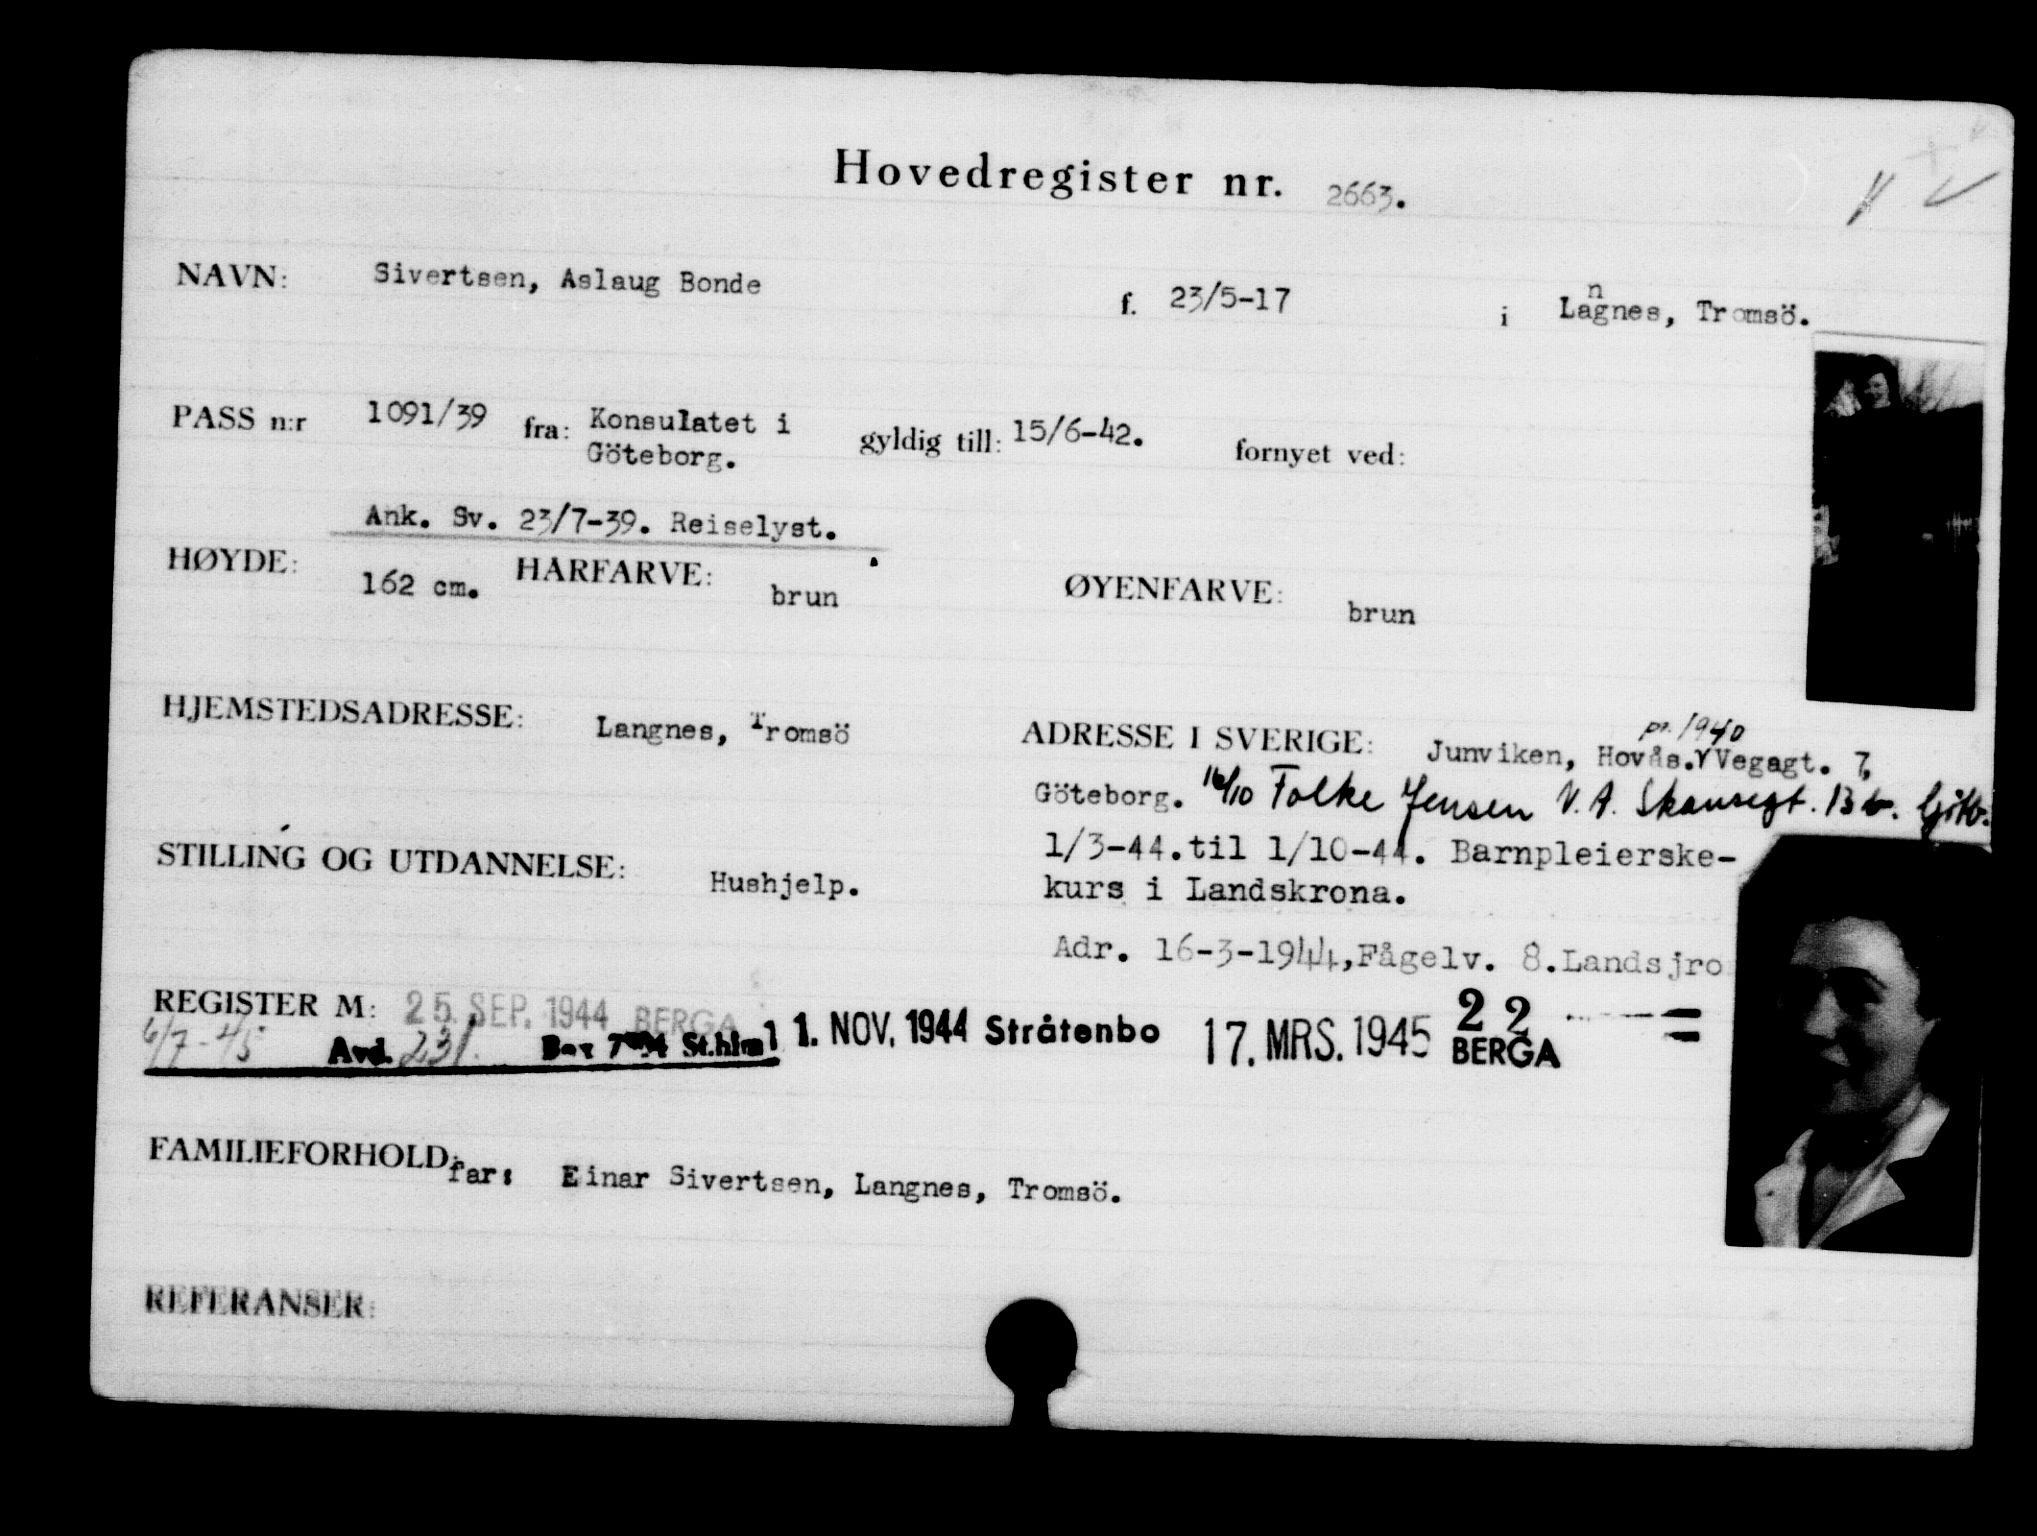 Hovedregister nr. 2663.
NAVN: Sivertsen, Aslaug Bonde f. 23/5-17 i Lagnes, Tromsö.
n
PASS n:r 1091/39 fra: Konsulatet i Göteborg. gyldig till: 15/6-42. fornyet ved:
Ank. Sv. 23/7-39. Reiselyst.
HØYDE: 162 cm. HÅRFARVE: brun ØYENFARVE: brun
HJEMSTEDSADRESSE: Langnes, Tromsö
ADRESSE I SVERIGE: Junviken, Hovås. Vegagt. 7,
pr. 1940
Göteborg. 16/10 Folke Jensen V. A. Skansegt. 13 b. Gitb.
1/3-44.til 1/10-44. Barnpleierske-
kurs i Landskrona.
STILLING OG UTDANNELSE: Hushjelp.
Adr. 16-3-1944,Fågelv. 8.Landsjro
REGISTER M: 25. SEP. 1944 BERGA
6/7-45 Avd. 231. Box 7 St.hlm 1
1. NOV. 1944 Stråtenbo 17. MRS. 1945 22 BERGA
FAMILIEFORHOLD: far: Einar Sivertsen, Langnes, Tromsö.
REFERANSER: